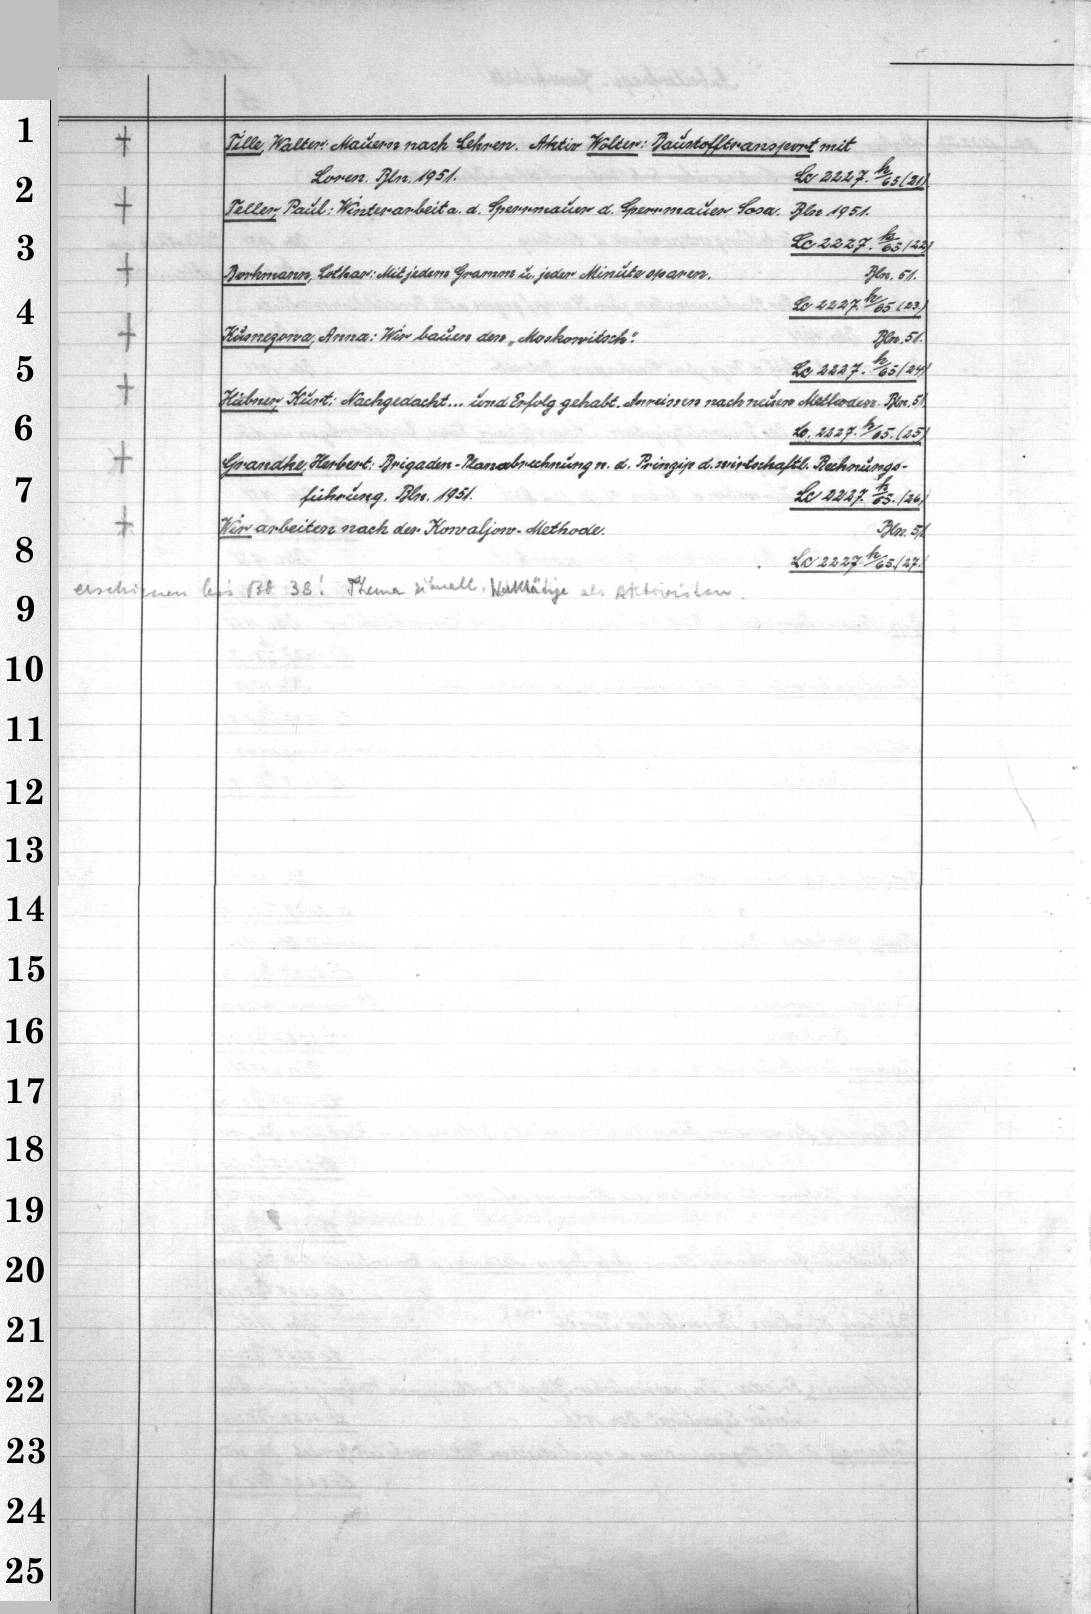 1 + Tille, Walter: Mauern nach Lehren. Aktiv Wolter: Baustofftransport mit
2 Loren. Bln. 1951. Lc 2227. k/65 (21)
+ Teller, Paul: Winterarbeit a. d. Sperrmauer d. Sperrmauer Sosa. Bln 1951.
3 Lc 2227. k/65 (22)
+ Borkmann, Lothar: Mit jedem Gramm u. jeder Minute sparen. Bln. 51.
4 Lc 2227. k/65 (23)
+ Kusnezowa, Anna: Wir bauen den „Moskowitsch". Bln. 51.
5 Lc 2227. k/65 (24)
+ Hübner, Kurt: Nachgedacht... und Erfolg gehabt. Anreissen nach neuen Methoden. Bln. 51
6 Lc. 2227. k/65. (25)
+ Grandke, Herbert: Brigaden-Planabrechnung n. d. Prinzip d. wirtschaftl. Rechnungs-
7 führung. Bln. 1951. Lc 2227. k/65. (26)
+ Wir arbeiten nach der Kowaljow-Methode. Bln. 51
8 Lc 2227. k/65. (27.)
erschienen bis Bd 38! Thema aktuell. Werktätige als Aktivisten.
9
10
11
12
13
14
15
16
17
18
19
20
21
22
23
24
25